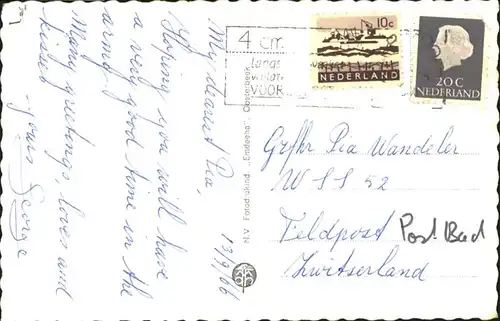 13/9/66
My dearest Pia,
Hoping you will have
a very good time in the
army.
Many greetings, loves and
kisses
yours George
N.V. Fotodrukind. „Eerdbeem" Oosterbeek
4 cm.
langs
VOOR
10c
NEDERLAND
20C
NEDERLAND
Gefhr Pia Wandeler
WSS 52
Feldpost Post Bad
Zwitserland